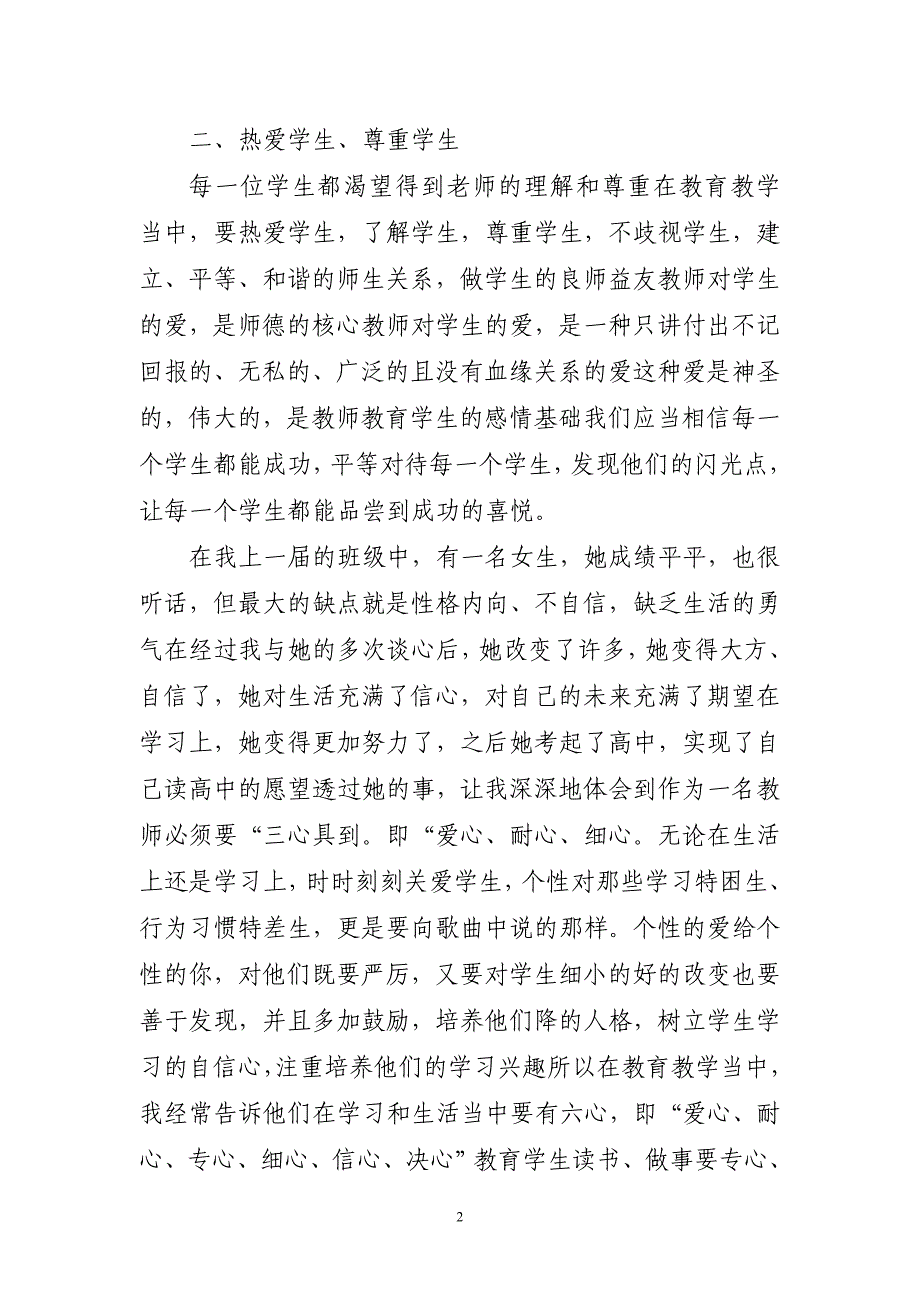 二、热爱学生、尊重学生
每一位学生都渴望得到老师的理解和尊重在教育教学
当中，要热爱学生，了解学生，尊重学生，不歧视学生，建
立、平等、和谐的师生关系，做学生的良师益友教师对学生
的爱，是师德的核心教师对学生的爱，是一种只讲付出不记
回报的、无私的、广泛的且没有血缘关系的爱这种爱是神圣
的，伟大的，是教师教育学生的感情基础我们应当相信每一
个学生都能成功，平等对待每一个学生，发现他们的闪光点，
让每一个学生都能品尝到成功的喜悦。
在我上一届的班级中，有一名女生，她成绩平平，也很
听话，但最大的缺点就是性格内向、不自信，缺乏生活的勇
气在经过我与她的多次谈心后，她改变了许多，她变得大方、
自信了，她对生活充满了信心，对自己的未来充满了期望在
学习上，她变得更加努力了，之后她考起了高中，实现了自
己读高中的愿望透过她的事，让我深深地体会到作为一名教
师必须要“三心具到。即“爱心、耐心、细心。无论在生活
上还是学习上，时时刻刻关爱学生，个性对那些学习特困生、
行为习惯特差生，更是要向歌曲中说的那样。个性的爱给个
性的你，对他们既要严厉，又要对学生细小的好的改变也要
善于发现，并且多加鼓励，培养他们降的人格，树立学生学
习的自信心，注重培养他们的学习兴趣所以在教育教学当中，
我经常告诉他们在学习和生活当中要有六心，即“爱心、耐
心、专心、细心、信心、决心”教育学生读书、做事要专心、
2